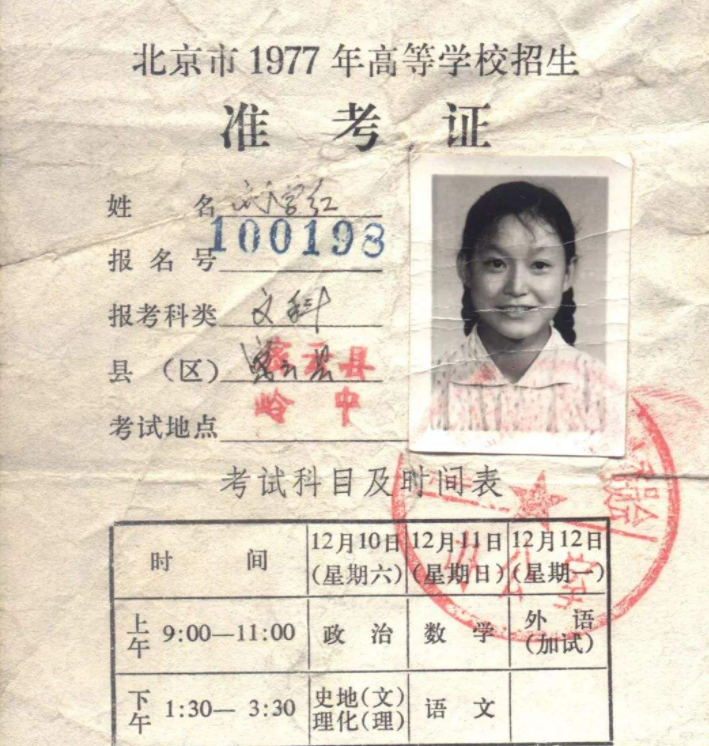 北京市1977年高等学校招生
准考证
姓名 刘学红
报名号 100198
报考科类 文科
县（区） 密云县
密云县
岭中
考试地点
考试科目及时间表
时间 12月10日(星期六) 12月11日(星期日) 12月12日(星期一)
上午 9:00—11:00 政治 数学 外语(加试)
下午 1:30—3:30 史地(文)理化(理) 语文
办公室